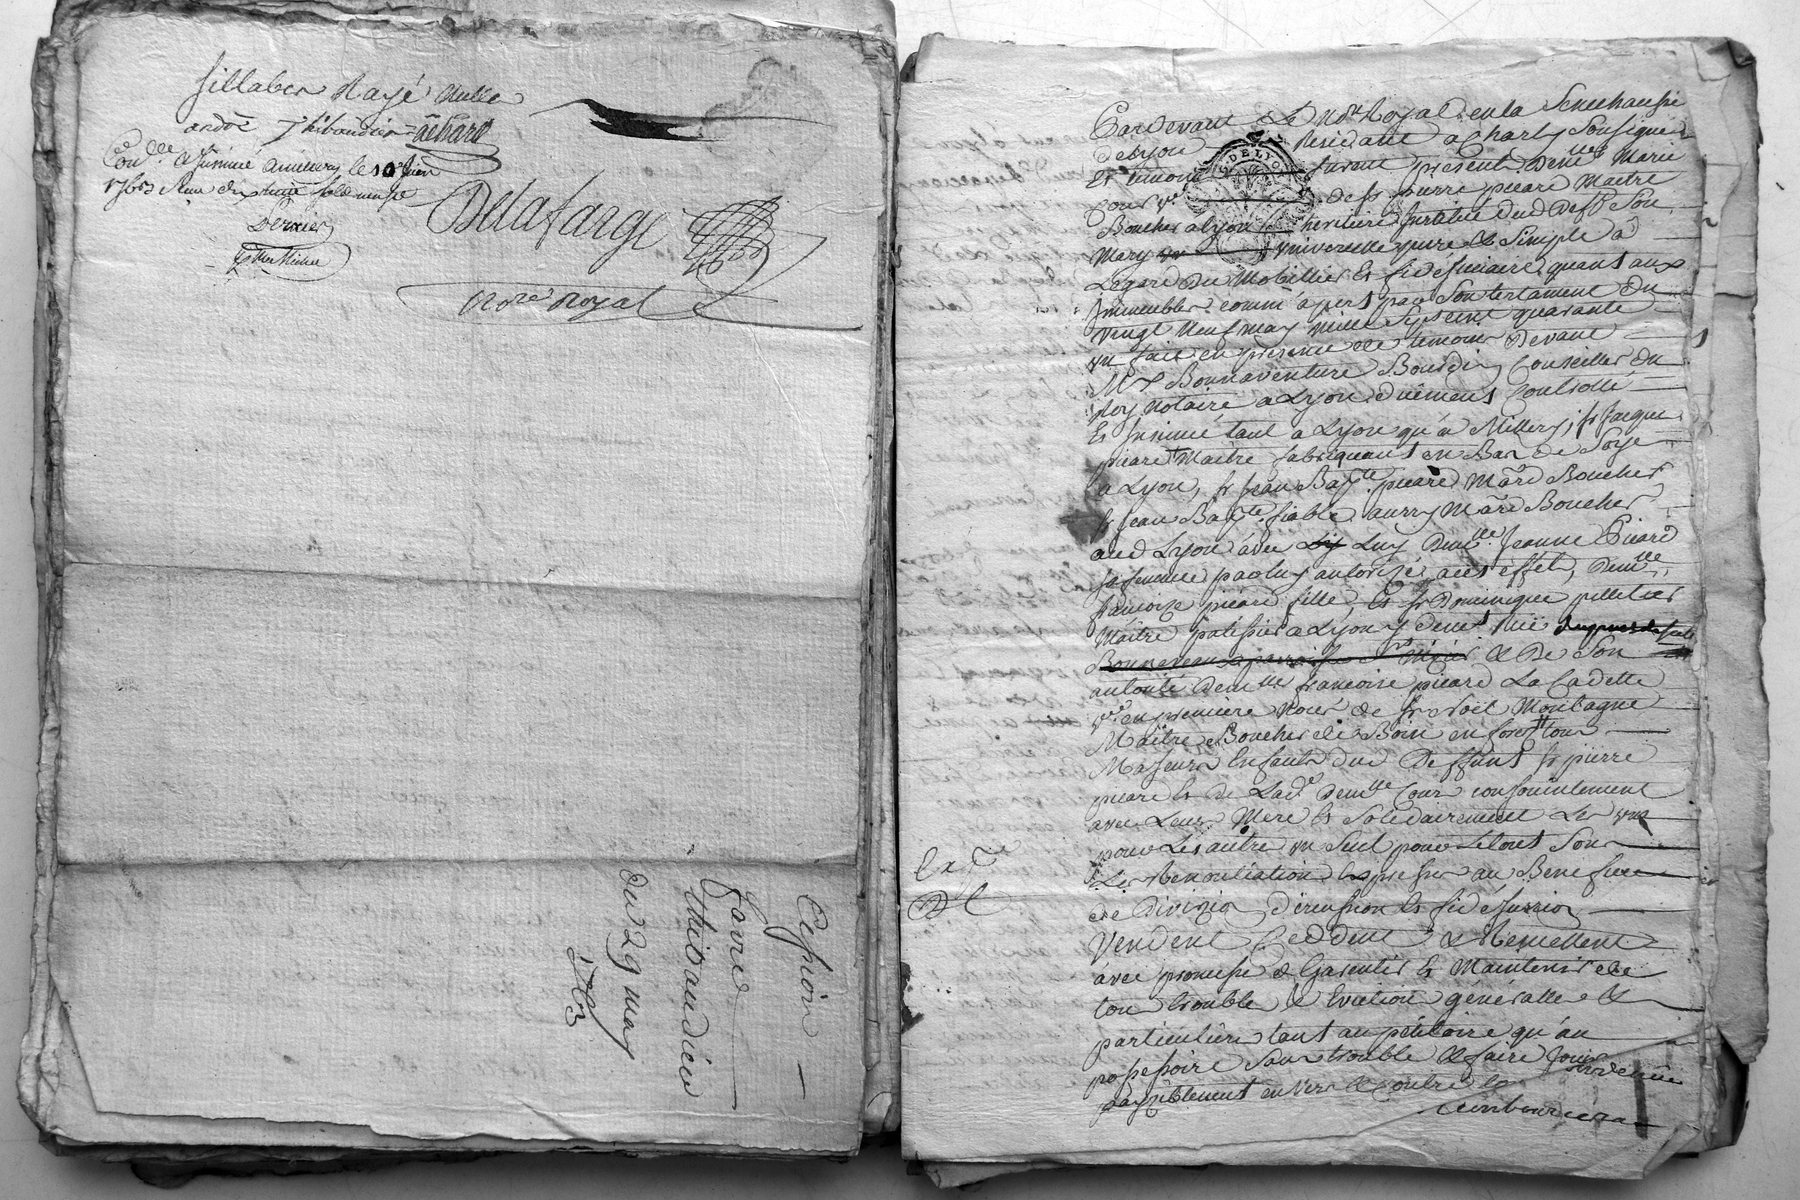 sillaber Rayé Nulle
andré Thibaudier achard
Con.lle & insinué a millery le 10e Juin
1763
Dernier
Delafarge
No.re Royal
Cession
favre
Thibaudier
du 29 may
1763
Pardevant Le No.re Royal en la Senechaussée
delyon Residant a Charly Soussigné
Et temoins furent present Dem.lle Marie
Cour v.e de Sr. pierre picard Maitre
Boucher alyon heritiere Instituée dud. Deff.t Son
Mary universelle pure & Simple a
Legard du Mobillier Et fideicuiaire quant aux
Immeubles comm' apert par Son testament du
vingt Neuf may mille Sept cent quarante
un fait en presence de temoins Devant
M.e Bonnaventure Bourdin Conseiller du
Roy Notaire a Lyon düement Controllé
Et Insinué tant a Lyon qu'a Millery, Sr. Jacque
picard Maitre fabriquant en Bas de Soye
a Lyon, Sr. Jean Bap.te picard M.e Boucher
Sr. Jean Bap.te fiable aussy M.e Boucher
aud Lyon avec Luy Dem.lle Jeanne Picard
sa femme par luy autorisée a cet effet, Dem.lle
francoize picard fille, Et Sr. Dominique pelletier
Maitre patissier a Lyon y demt. rüe
& De Son
autorité Dem.lle francoise picard La Cadette
v.e en premiere Noces de Sr. Noël Montagne
Maitre Boucher de Boin en forest tous
Majeurs Enfants dud Deffunt Sr. pierre
picard Et de Lad.e Dem.lle Cour conjointement
avec Leur Mere Et Solidairement Les uns
pour Les autre un Seul pour Letout Sous
Les Renonciation Expresses au Benefice
de Division, discussion Et fidejussion
Vendent Ceddent & Remettent
avec promesse de Garentir Et Maintenir de
tous trouble & Eviction généralle &
particuliere tant au pétitoire qu'au
possessoire Sans trouble & faire Jouir
payziblement envers & Contre
Ex.te